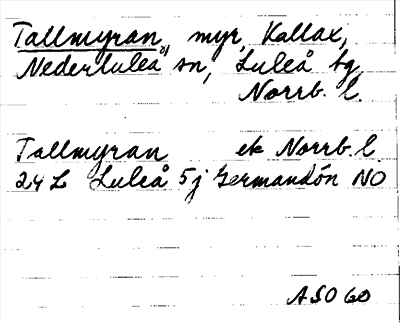 Tallmyran, myr, Kallax,
Nederluleå sn, Luleå tg
Norrb. l.
Tallmyran ek Norrb. l.
24 L Luleå 5j Germandön NO
ASO 60